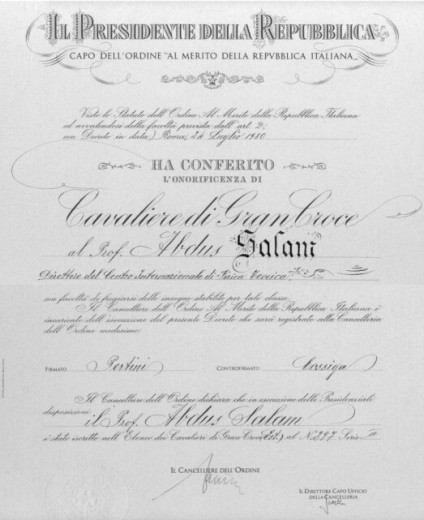 IL PRESIDENTE DELLA REPUBBLICA
CAPO DELL'ORDINE "AL MERITO DELLA REPVBBLICA ITALIANA"
Visto lo Statuto dell'Ordine Al Merito della Repubblica Italiana
ed avvalendosi della facoltà prevista dall'art. 2;
con Decreto in data, Roma, Luglio 1980
HA CONFERITO
L'ONORIFICENZA DI
Cavaliere di Gran Croce
al Prof. Abdus Salam
Direttore del Centro Internazionale di Fisica Teorica
con facoltà di fregiarsi delle insegne stabilite per tale classe.
Il Cancelliere dell'Ordine Al Merito della Repubblica Italiana è
incaricato dell'esecuzione del presente Decreto che sarà registrato alla Cancelleria
dell'Ordine medesimo.
FIRMATO Pertini CONTROFIRMATO Cossiga
Il Cancelliere dell'Ordine dichiara che in esecuzione delle Presidenziali
disposizioni
il Prof. Abdus Salam
è stato iscritto nell'Elenco dei Cavalieri di Gran Croce al N. 227 Serie
IL CANCELLIERE DELL'ORDINE
IL DIRETTORE CAPO UFFICIO
DELLA CANCELLERIA